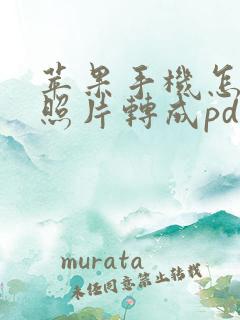 苹果手機怎
照片轉成pd
murata
未任同意禁止转载